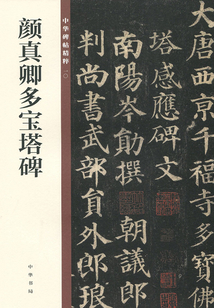 颜真卿多宝塔碑
中華碑帖精粹
中華書局
大唐西京千福寺多寶佛
塔感應碑文
南陽岑勛撰 朝議郎
判尚書武部員外郎琅